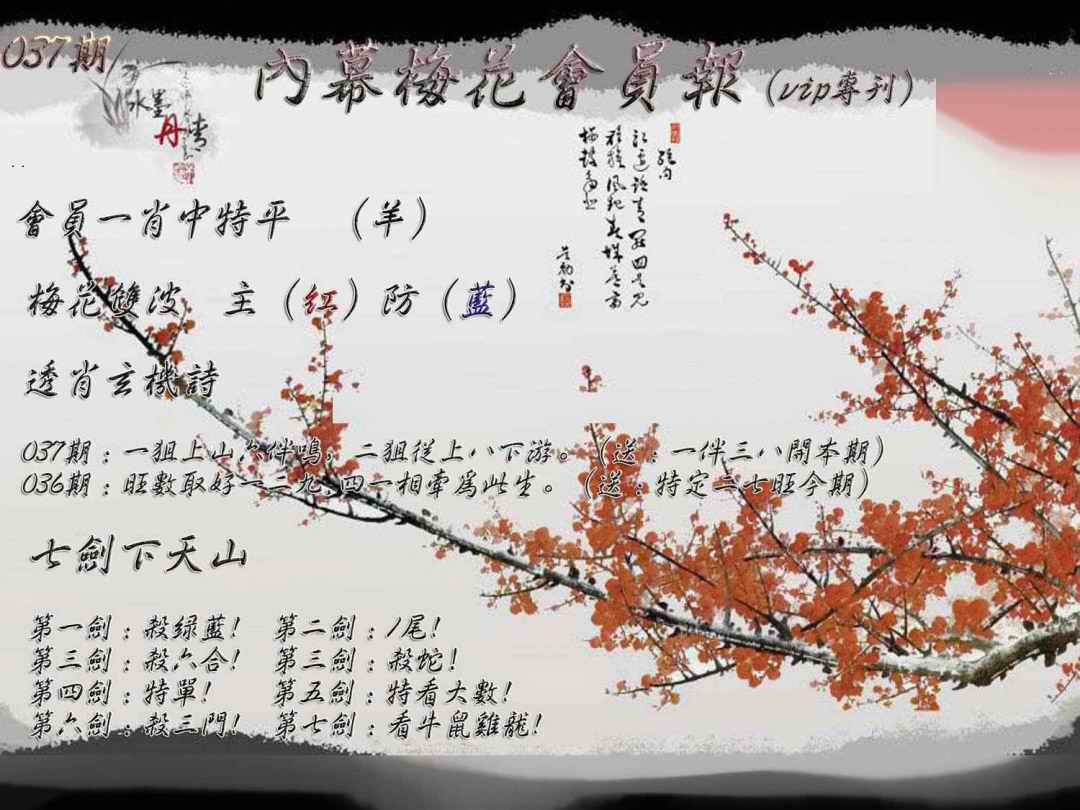 037期
內幕梅花會員報(vip專刊)
水墨
丹青
會員一肖中特平 （羊）
梅花雙波 主（紅）防（藍）
透肖玄機詩
037期：一狙上山六伴鳴，二狙從上八下游。（送：一伴三八開本期）
036期：旺數取好一二九,四一相牽為此生。（送：特定二七旺今期）
七劍下天山
第一劍：殺绿藍! 第二劍：1尾!
第三劍：殺六合! 第三劍：殺蛇!
第四劍：特單! 第五劍：特看大數!
第六劍：殺三門! 第七劍：看牛鼠雞龍!